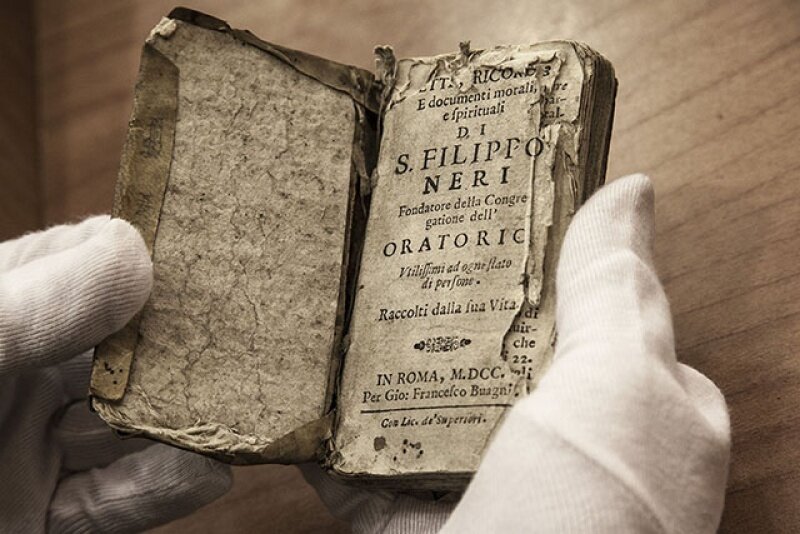 RICOR
E documenti morali,
e ſpirituali
D I
S. FILIPPO
NERI
Fondatore della Congre
gatione dell'
ORATORIO
Vtiliſſimi ad ogne ſtato
di perſone.
Raccolti dalla ſua Vita
di
uir-
che
22.
IN ROMA, M.DCC.
Per Gio: Franceſco Buagni
Con Lic. de' Superiori.